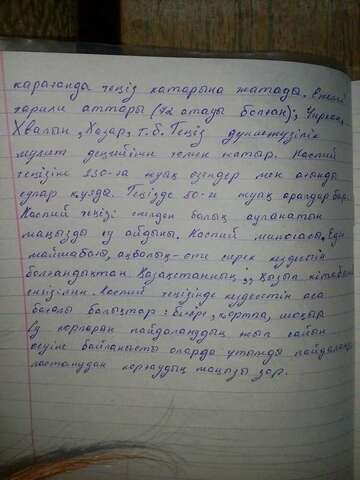 қарағанда теңіз қатарына жатады. Ежелгі
тарихи аттары (72 атауы болған); Гиркан,
Хвалын, Хазар, т.б. Теңіз дүниежүзілік
мұхит деңгейінен төмен жатыр. Каспий
теңізіне 130-ға жуық өзендер мен ағынды
сулар құяды. Теңізде 50-ге жуық аралдар бар.
Каспий теңізі ежелден балық ауланатын
маңызды су айдыны. Каспий миногасы, Еділ
майшабағы, ақбалық-өте сирек кездесетін
болғандықтан Қазақстанның "Қызыл кітабына"
енгізілген. Каспий теңізінде кездесетін аса
бағалы балықтар: бекіре, қортпа, шоқыр
Су қорларын пайдаланудың жыл сайын
өсуіне байланысты оларды ұтымды пайдалану,
ластанудан қорғаудың маңызы зор.